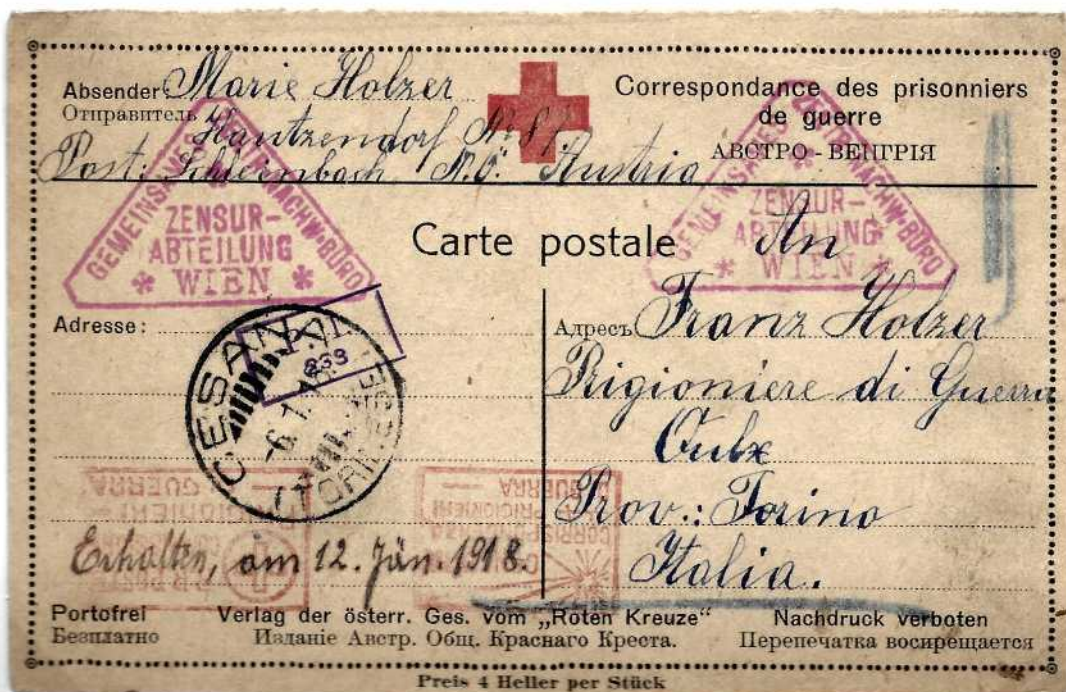 Absender: Marie Holzer
Отправитель
Hautzendorf No
Post: Schleinbach N.Ö. Austria
Correspondance des prisonniers
de guerre
АВСТРО-ВЕНГРІЯ
GEMEINSAMES ZENTRALNACHW-BÜRO
ZENSUR-
ABTEILUNG
* WIEN *
GEMEINSAMES ZENTRALNACHW-BÜRO
ZENSUR-
ABTEILUNG
* WIEN *
Carte postale
An
Adresse:
CESANA
-6.1.18
(TORINESE)
Адресъ Franz Holzer
Prigioniere di Guerra
Oulx
Prov.: Torino
Italia.
CORRISPONDENZA
PRIGIONIERI
GUERRA
PRIGIONIERI
GUERRA
Erhalten, am 12. Jän. 1918.
Portofrei Verlag der österr. Ges. vom „Roten Kreuze“ Nachdruck verboten
Безплатно Изданіе Австр. Общ. Краснаго Креста. Перепечатка восирещается
Preis 4 Heller per Stück